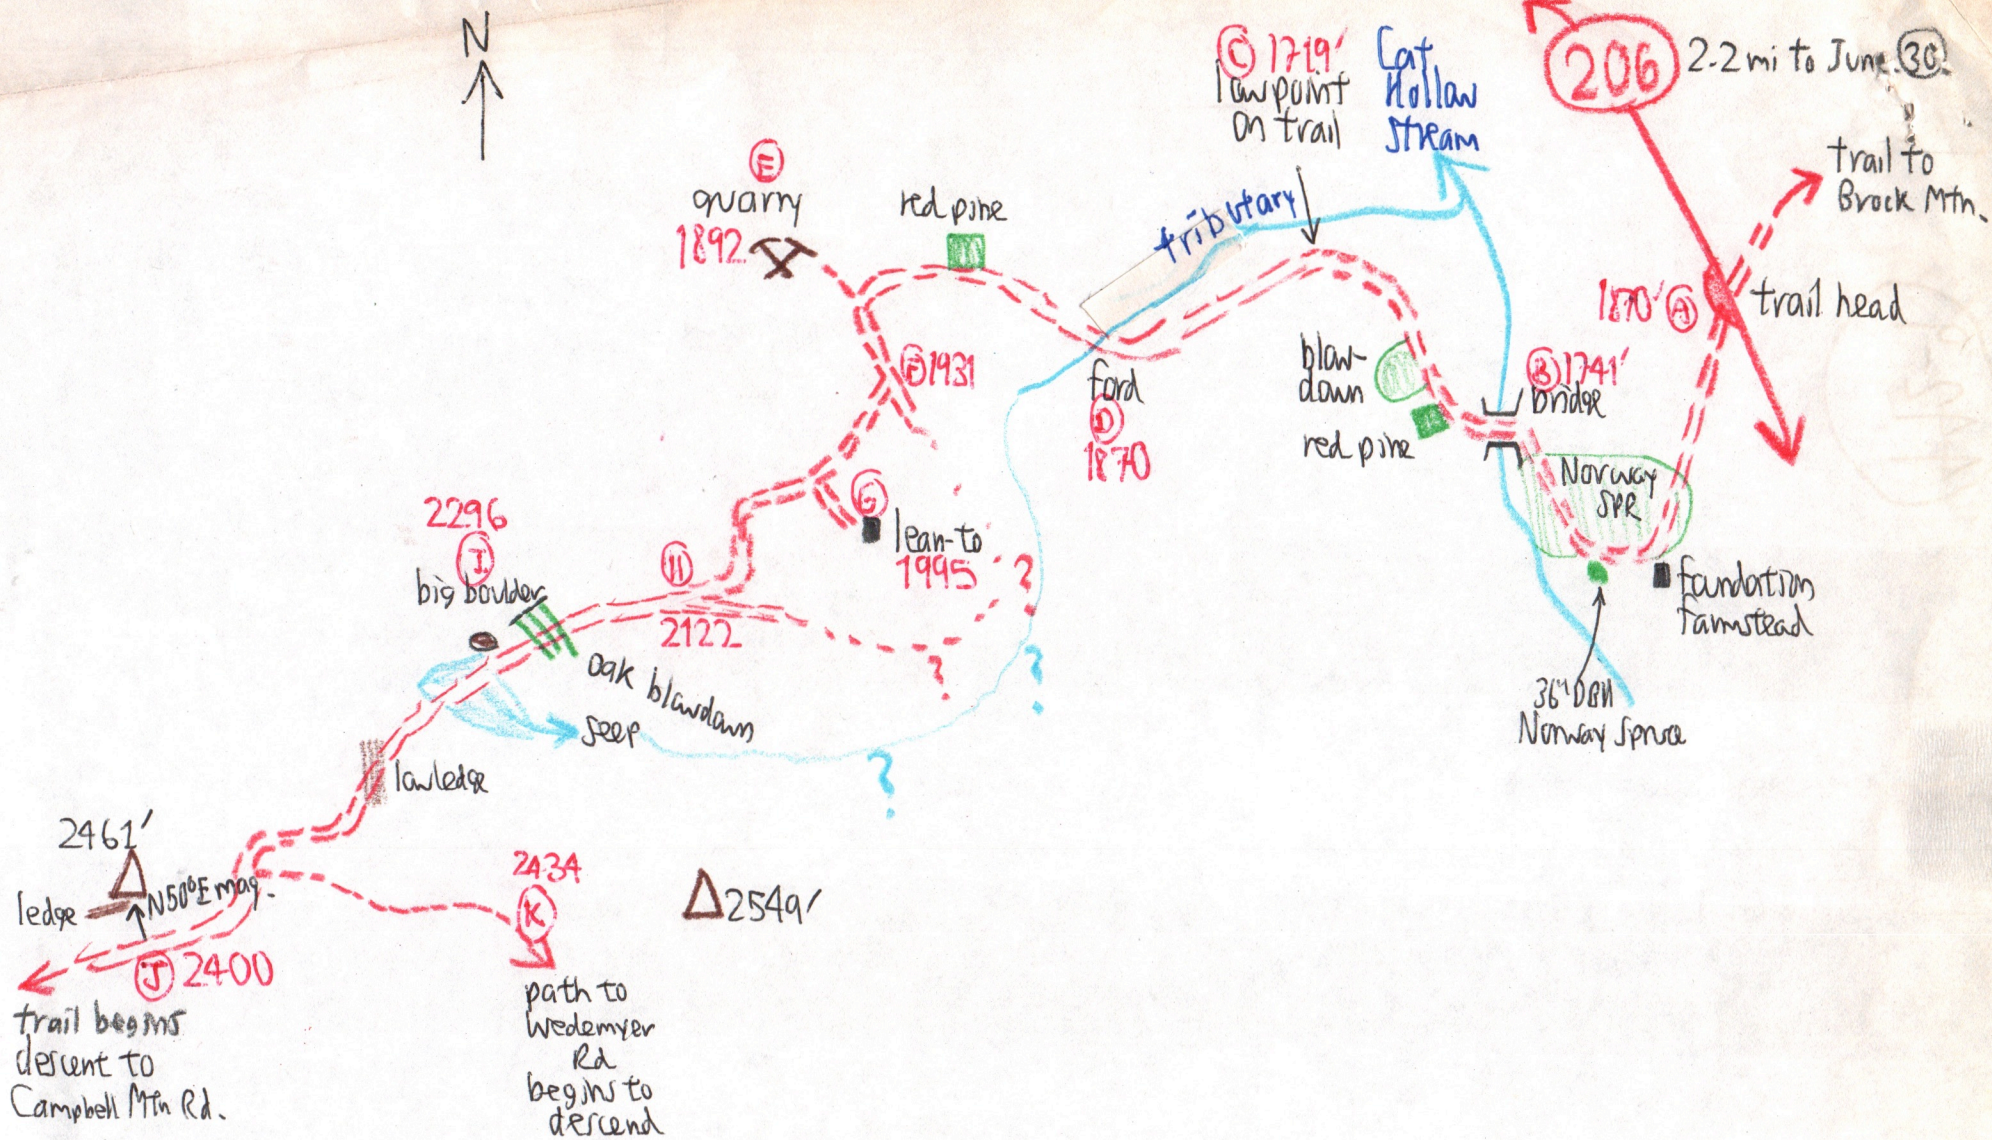 N
C 1719'
low point
on trail
Cat
Hollow
Stream
206
2.2 mi to June. 30
trail to
Brock Mtn.
E
quarry
1892
red pine
tributary
1870' A
trail head
F 1931
ford
D
1870
blow-
down
red pine
B 1741'
bridge
Norway
SPR
foundation
farmstead
36" DBH
Norway Spruce
G
lean-to
1995
?
?
?
?
2296
I
big boulder
H
2122
oak blowdown
seep
low ledge
2461'
N50°E mag.
ledge
J 2400
trail begins
descent to
Campbell Mtn Rd.
2434
K
path to
Wedemyer
Rd
begins to
descend
2549'